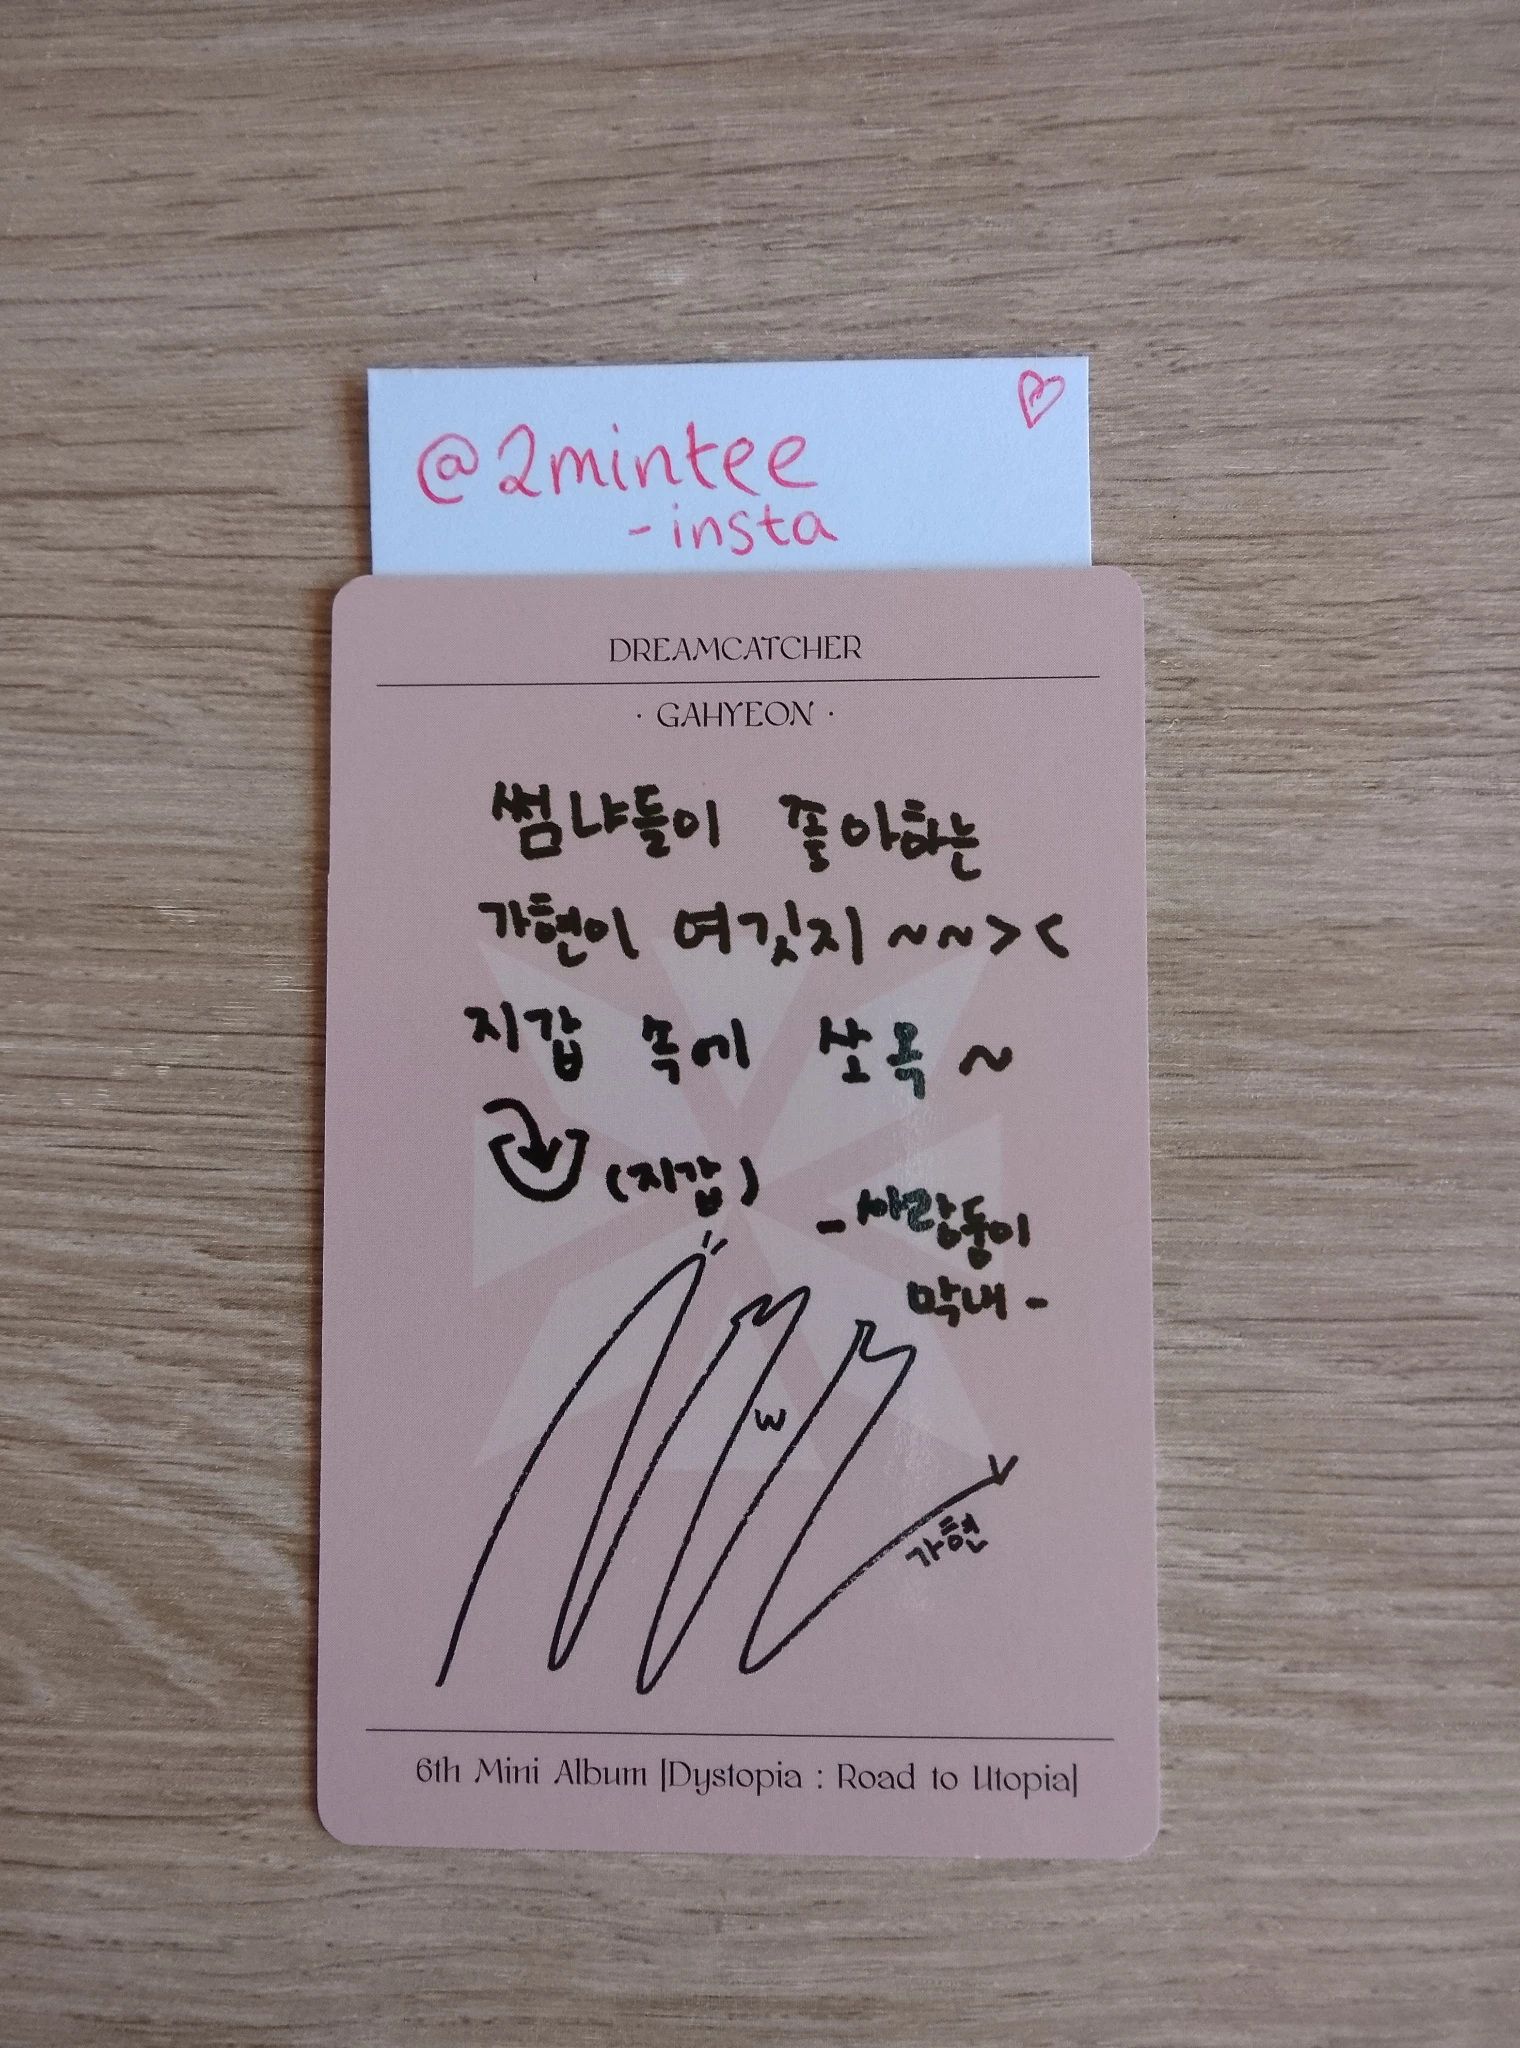 @2mintee
-insta
DREAMCATCHER
· GAHYEON ·
썸냐들이 좋아하는
가현이 여깃지~~><
지갑 속에 쏘옥~
(지갑)
-사랑둥이
막내-
w
가현
6th Mini Album [Dystopia : Road to Utopia]